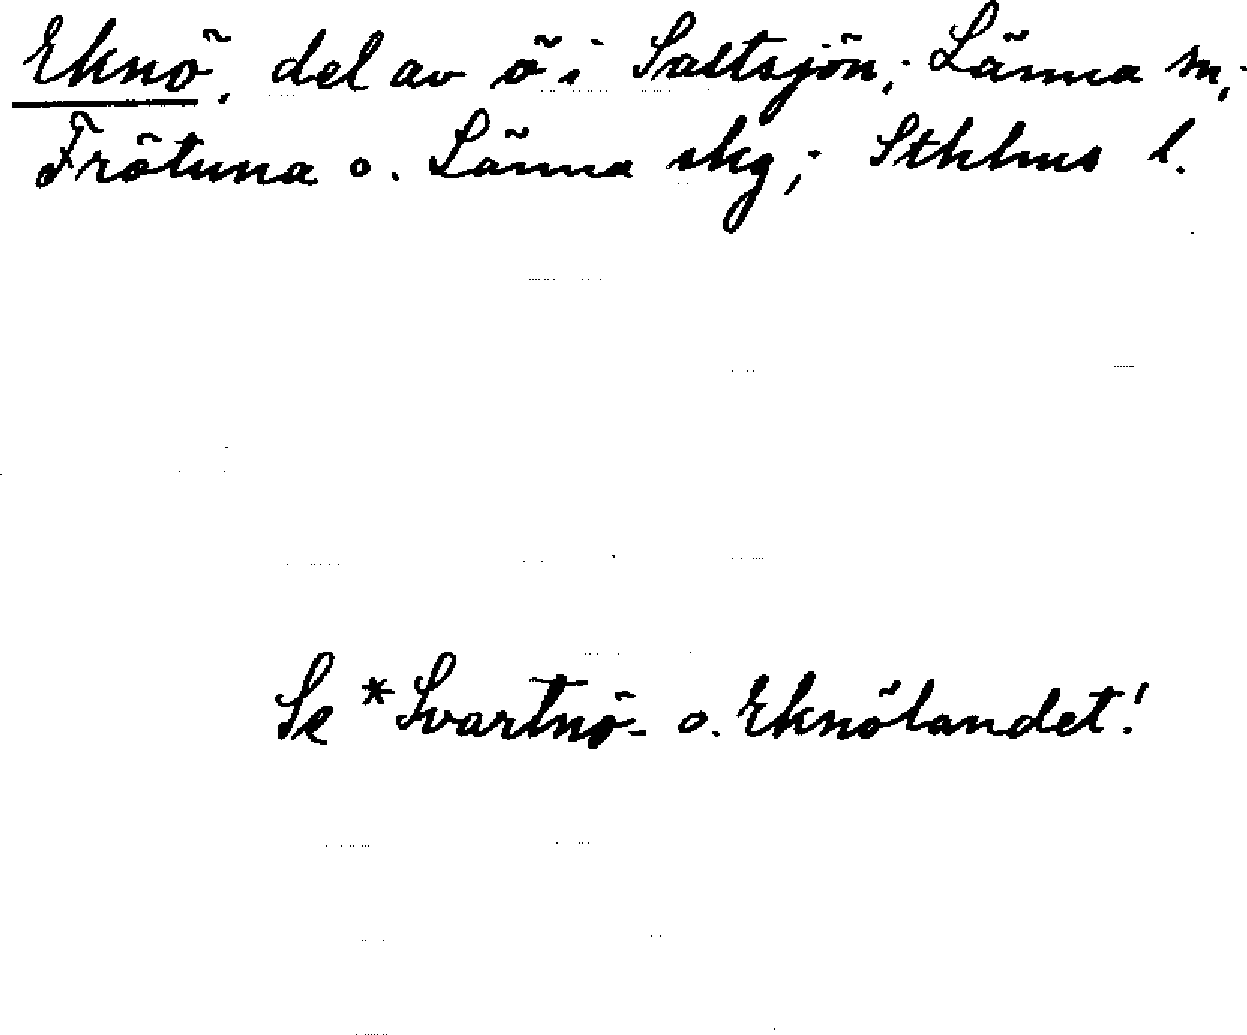 Eknö, del av ö i Saltsjön; Länna sn;
Frötuna o. Länna skg; Sthlms l.
Se *Svartnö- o. Eknölandet!